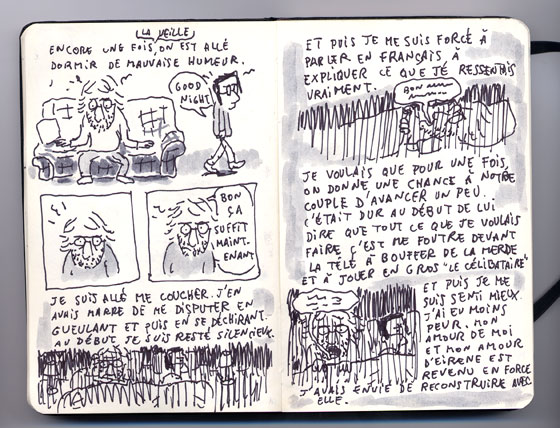 LA VEILLE
ENCORE UNE FOIS, ON EST ALLÉ
DORMIR DE MAUVAISE HUMEUR.
GOOD
NIGHT
BON
ÇA
SUFFIT
MAINT-
ENANT
JE SUIS ALLÉ ME COUCHER. J'EN
AVAIS MARRE DE ME DISPUTER EN
GUEULANT ET PUIS EN SE DÉCHIRANT.
AU DÉBUT JE SUIS RESTÉ SILENCIEUX.
ET PUIS JE ME SUIS FORCÉ À
PARLER EN FRANÇAIS, À
EXPLIQUER CE QUE JE RESSENTAIS
VRAIMENT.
BON
JE VOULAIS QUE POUR UNE FOIS,
ON DONNE UNE CHANCE À NOTRE
COUPLE D'AVANCER UN PEU.
C'ÉTAIT DUR AU DÉBUT DE LUI
DIRE QUE TOUT CE QUE JE VOULAIS
FAIRE C'EST ME FOUTRE DEVANT
LA TÉLÉ À BOUFFER DE LA MERDE
ET À JOUER EN GROS "LE CÉLIBATAIRE"
ET PUIS JE ME
SUIS SENTI MIEUX.
J'AI EU MOINS
PEUR. MON
AMOUR DE MOI
ET MON AMOUR
D'EIRENE EST
REVENU EN FORCE
J'AVAIS ENVIE DE RECONSTRUIRE AVEC
ELLE.